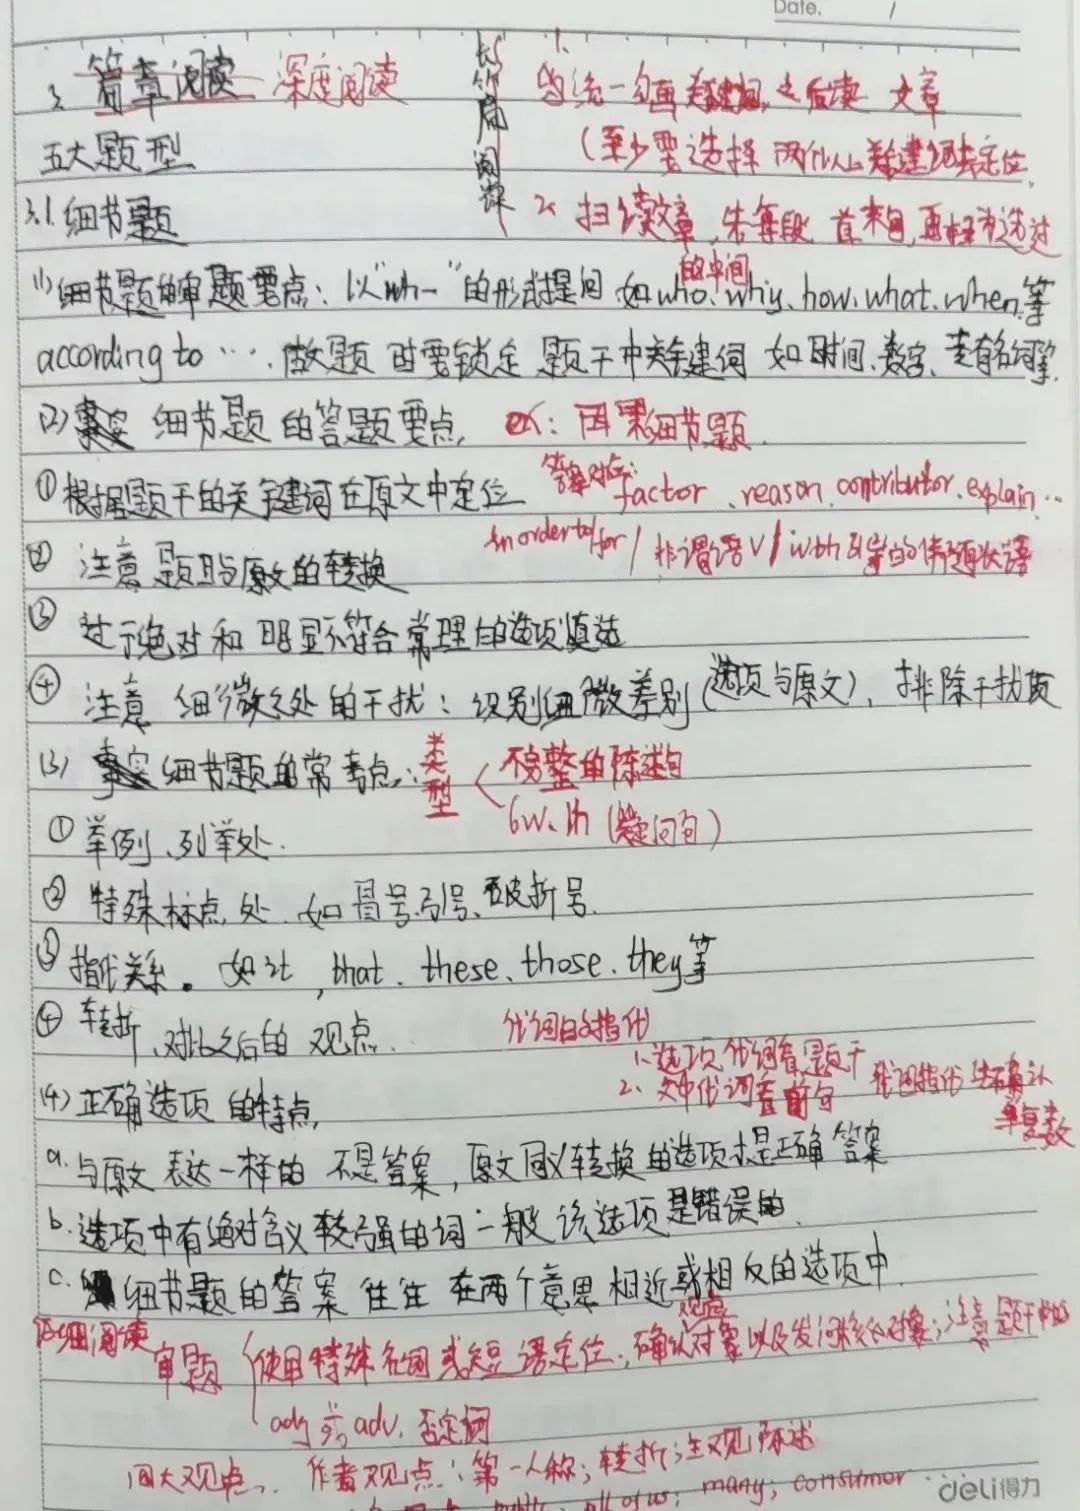 Date. /
3. 篇章阅读 深度阅读
长篇阅读
1. 统一勾画关键词,之后读文章
五大题型
(至少要选择两个以上关键词去定位
3.1.细节题
2. 扫读文章,先每段首末句,再扫
的中间
(1)细节题的审题要点:以"wh—"的形式提问 如who、why、how、what、when、等
according to ….做题时要锁定题干中关键词 如时间、数字、专有名词等.
(2)事实 细节题的答题要点, ex:因果细节题
①根据题干的关键词在原文中定位
答案对应:factor、reason、contributor、explain…
in order to/for/非谓语V/with引导的伴随状语
② 注意题目与原文的转换
③ 过于绝对和明显不符合常理的选项慎选
④ 注意 细微之处的干扰:识别细微差别(选项与原文),排除干扰项
(3)事实细节题的常考点:类型 不完整的陈述句
6w、1h (疑问句)
①举例、列举处.
②特殊标点处.如冒号、引号、破折号.
③指代关系。如it,that、these、those、they等
④转折、对比之后的观点.
代词的指代
1、选项代词看题干
2、文中代词看前句
代词指代 先确认单复数
(4)正确选项的特点,
a.与原文表达一样的不是答案,原文同义转换的选项才是正确答案
b.选项中有绝对含义较强的词一般该选项是错误的.
c.细节题的答案往往在两个意思相近或相反的选项中.
仔细阅读
审题 使用特殊名词或短语定位;确认观点对象以及发问核心对象;注意题干中的
adj或adv.否定词
作者观点:第一人称;转折;主观陈述
all of us; many; consumer
deli得力